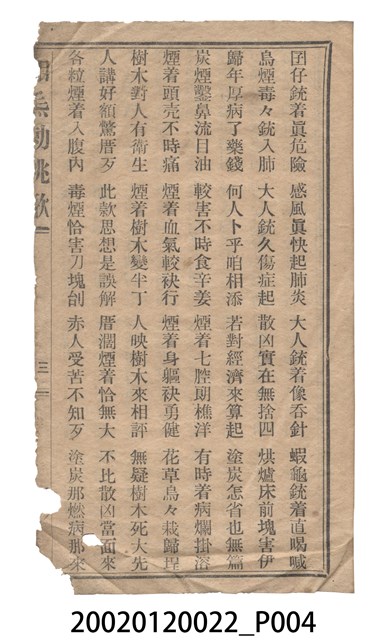 囝仔銃着眞危險 感風眞快起肺炎 大人銃着像吞針 蝦龜銃着直喝喊
烏煙毒々銃入肺 大人銃久傷症起 散凶實在無捨四 烘爐床前塊害伊
歸年厚病了藥錢 何人卜乎咱相添 若對經濟來算起 塗炭怎省也無篇
炭煙鑿鼻流目油 較害不時食辛姜 煙着七腔朗樵洋 有時着病爛掛溶
煙着頭壳不時痛 煙着血氣較袂行 煙着身軀袂勇健 花草烏々栽歸埕
樹木對人有衛生 煙着樹木變半丁 人映樹木來相評 無疑樹木死大先
人講好額驚厝歹 此款思想是誤解 厝濶煙着恰無大 不比散凶當面來
各粒煙着入腹內 毒煙恰害刀塊刣 赤人受苦不知歹 塗炭那燃病那來
勸桃歌
三
20020120022_P004